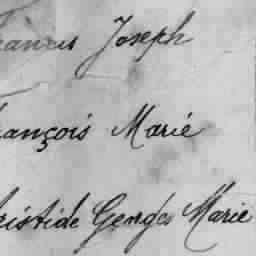 Francis Joseph
François Marie
Aristide Georges Marie